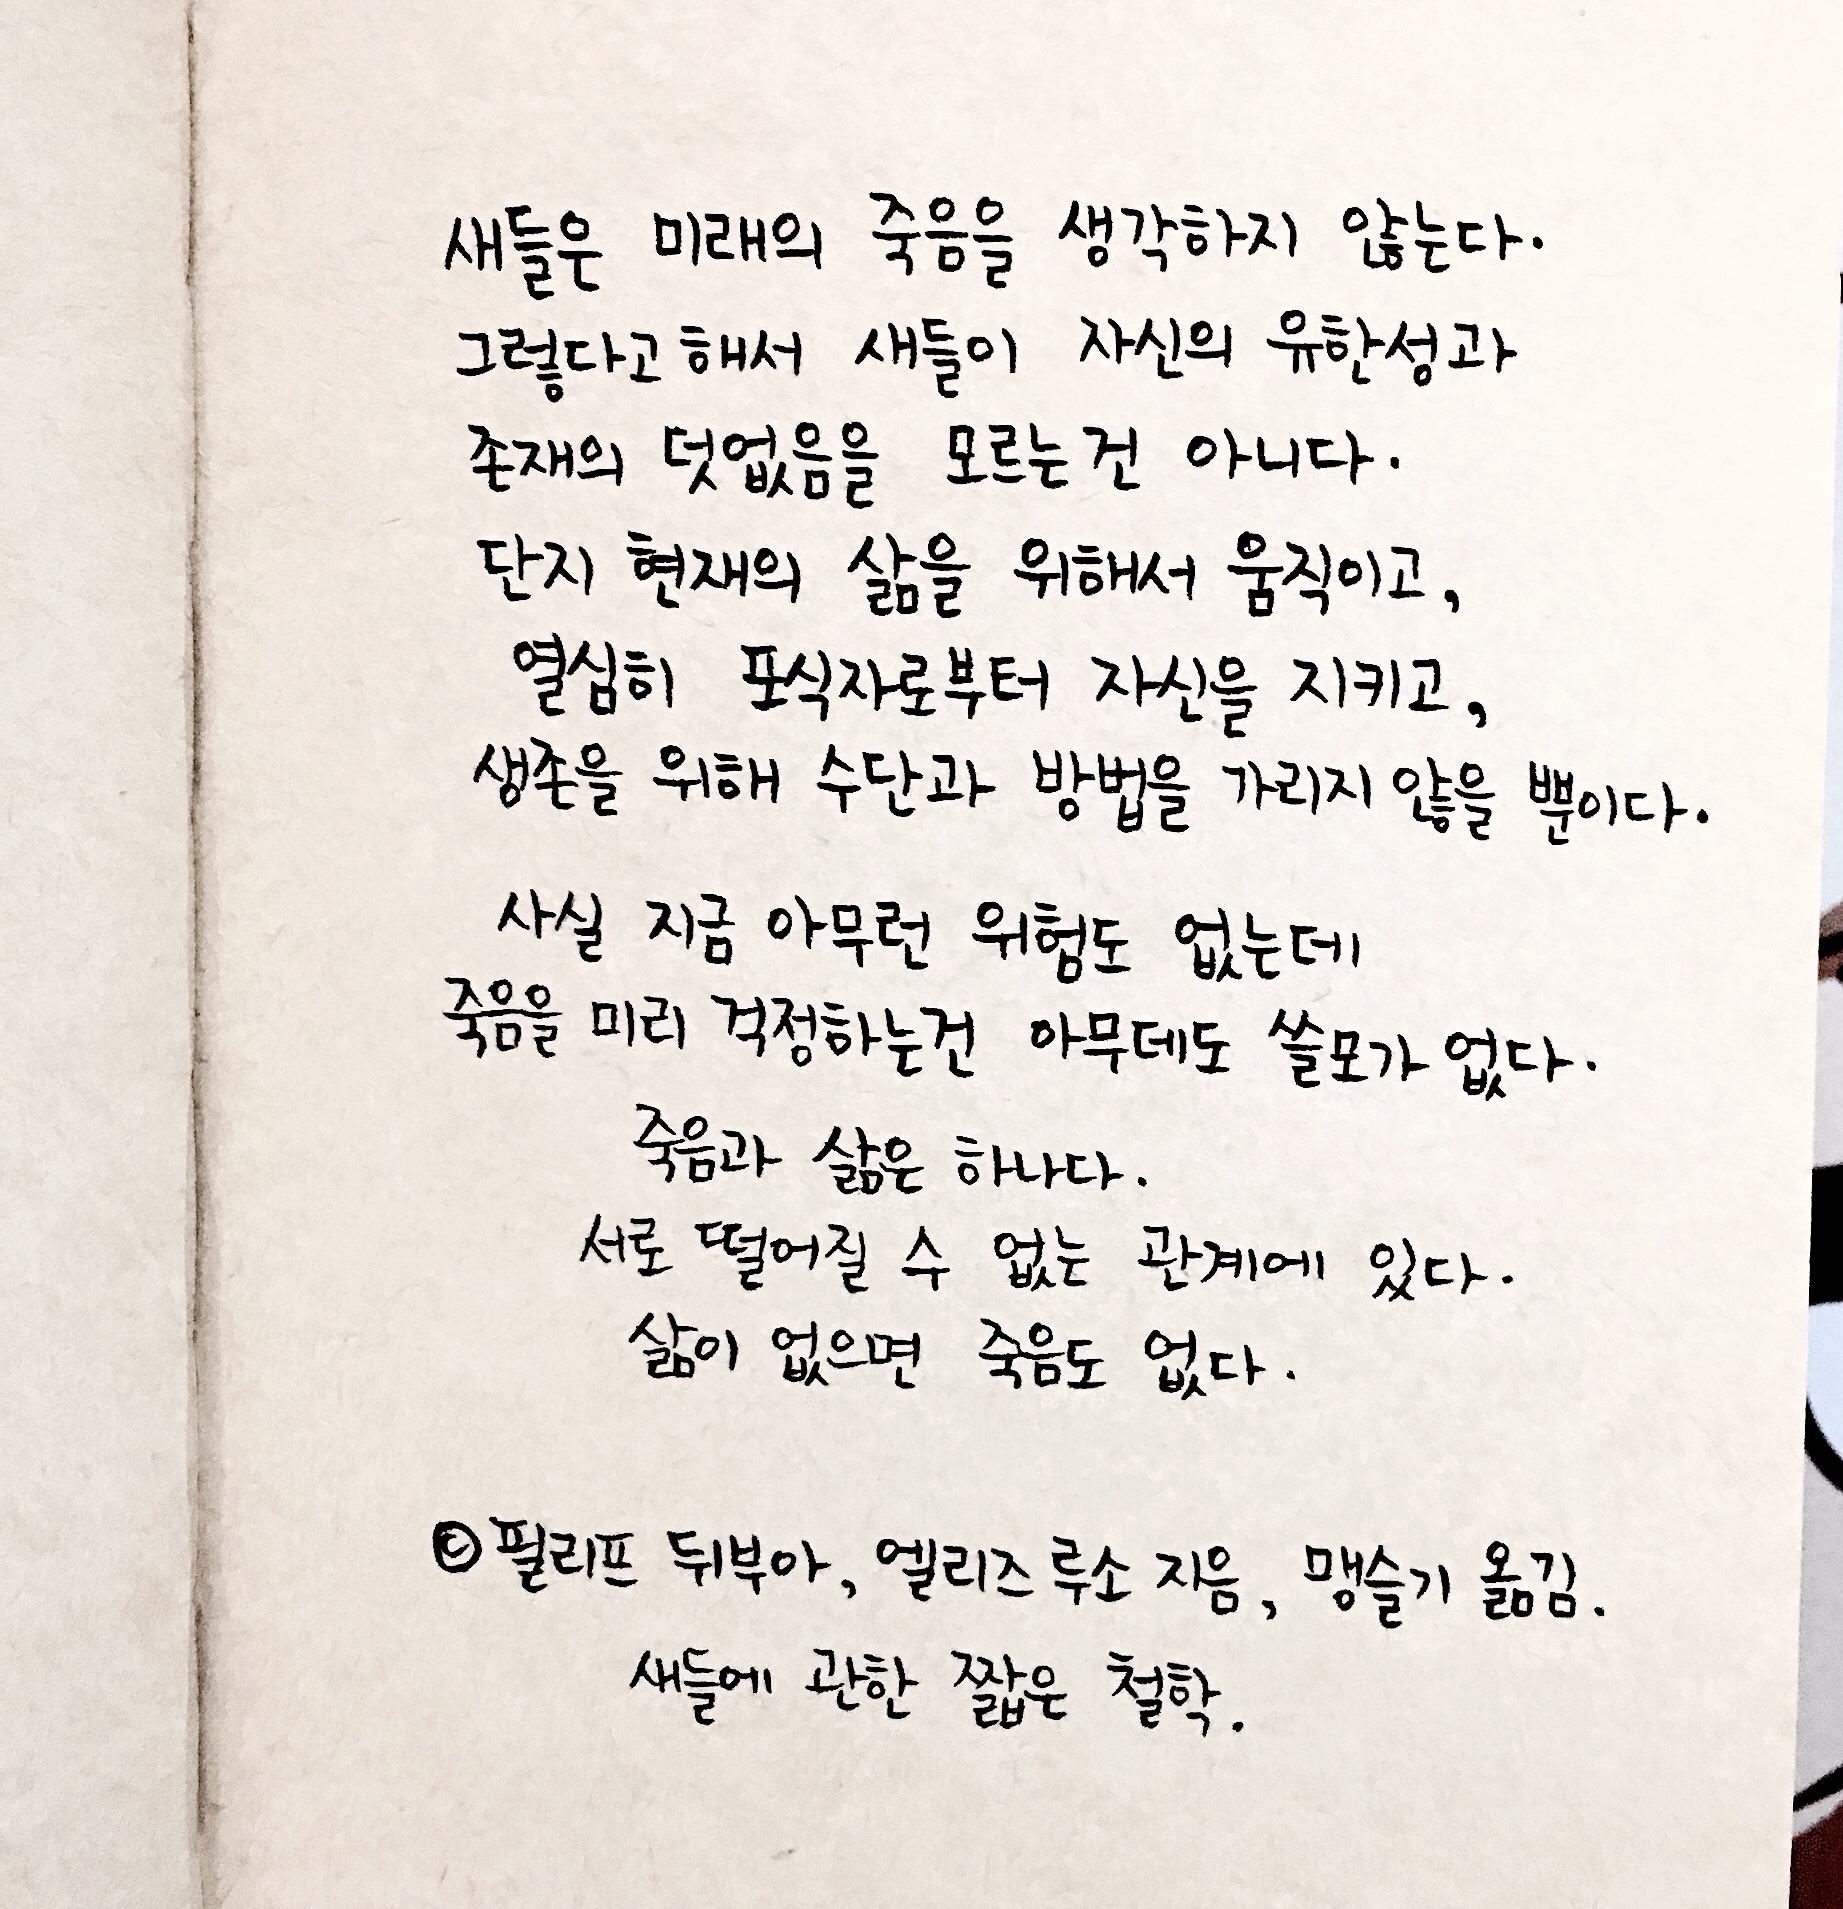 새들은 미래의 죽음을 생각하지 않는다.
그렇다고 해서 새들이 자신의 유한성과
존재의 덧없음을 모르는건 아니다.
단지 현재의 삶을 위해서 움직이고,
열심히 포식자로부터 자신을 지키고,
생존을 위해 수단과 방법을 가리지 않을 뿐이다.
사실 지금 아무런 위험도 없는데
죽음을 미리 걱정하는건 아무데도 쓸모가 없다.
죽음과 삶은 하나다.
서로 떨어질 수 없는 관계에 있다.
삶이 없으면 죽음도 없다.
© 필리프 뒤부아, 엘리즈 루소 지음, 맹슬기 옮김.
새들에 관한 짧은 철학.